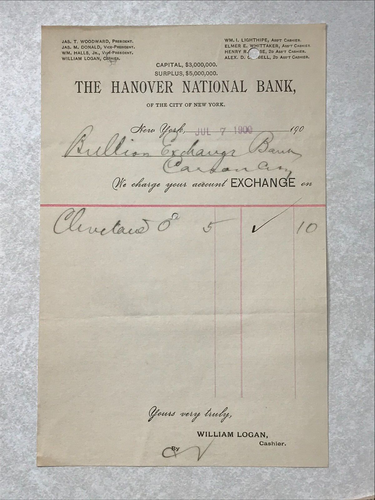 JAS. T. WOODWARD, PRESIDENT.
JAS. M. DONALD, VICE-PRESIDENT.
WM. HALLS, JR., VICE-PRESIDENT.
WILLIAM LOGAN, CASHIER.
WM. I. LIGHTHIPE, ASS'T CASHIER.
ELMER E. WHITTAKER, ASS'T CASHIER.
HENRY R. 2D ASS'T CASHIER.
ALEX. D. 2D ASS'T CASHIER.
CAPITAL, $3,000,000.
SURPLUS, $5,000,000.
THE HANOVER NATIONAL BANK,
OF THE CITY OF NEW YORK.
New York, JUL 7 1900 190
Bullion Exchange Bank
Carson City
We charge your account EXCHANGE on
Cleveland O 5 ✓ 10
Yours very truly,
WILLIAM LOGAN,
Cashier.
By